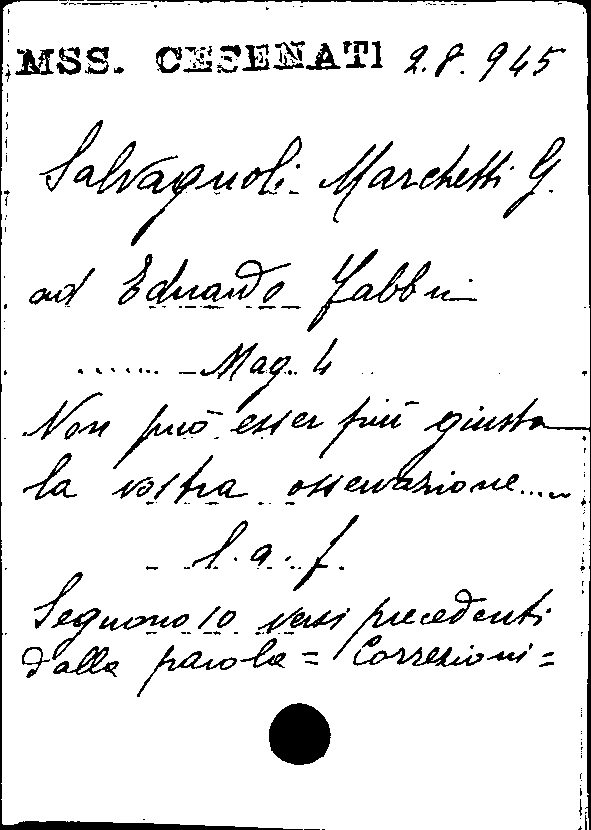 MSS. CESENATI 2.8.945
Salvagnoli Marchetti G.
ad Eduardo Fabbri
...... Mag. 4
Non può esser più giusta
la vostra osservazione.....
l. a. f.
Seguono 10 versi precedenti
dalla parola = Correzioni =